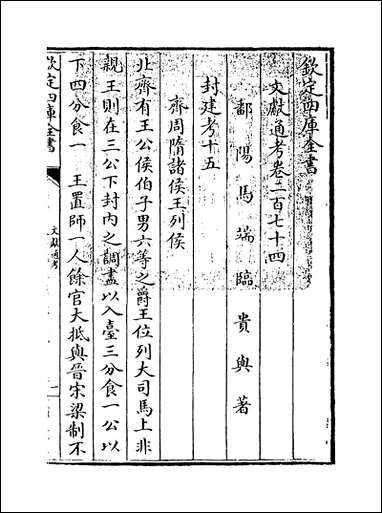 欽定四庫全書
文獻通考卷二百七十四
鄱陽馬端臨貴與著
封建考十五
齊周隋諸侯王列侯
北齊有王公侯伯子男六等之爵王位列大司馬上非
親王則在三公下封内之調盡以入臺三分食一公以
下四分食一 王置師一人餘官大抵與晉宋梁制不
欽定四庫全書
文獻通考
一